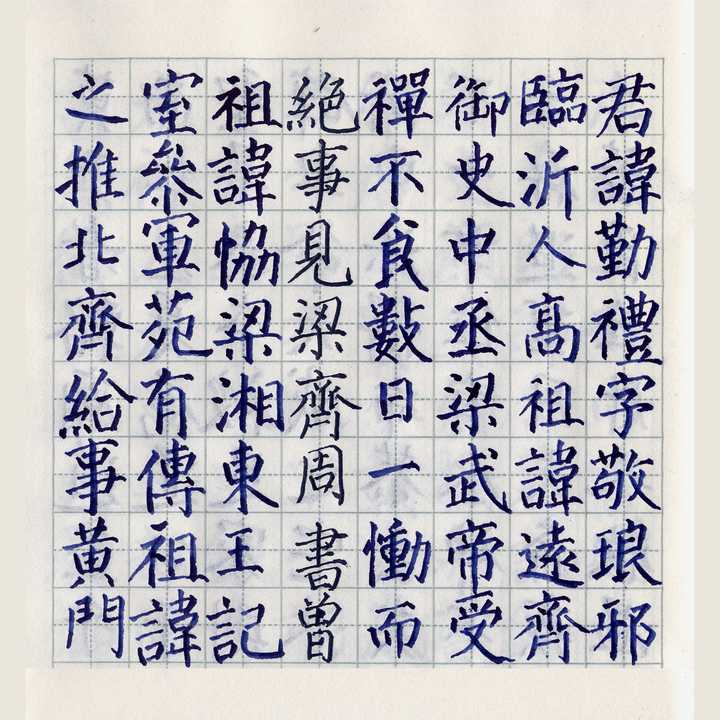 君諱勤禮字敬琅邪
臨沂人高祖諱遠齊
御史中丞梁武帝受
禪不食數日一慟而
絶事見梁齊周書曾
祖諱恊梁湘東王記
室參軍苑有傳祖諱
之推北齊給事黄門